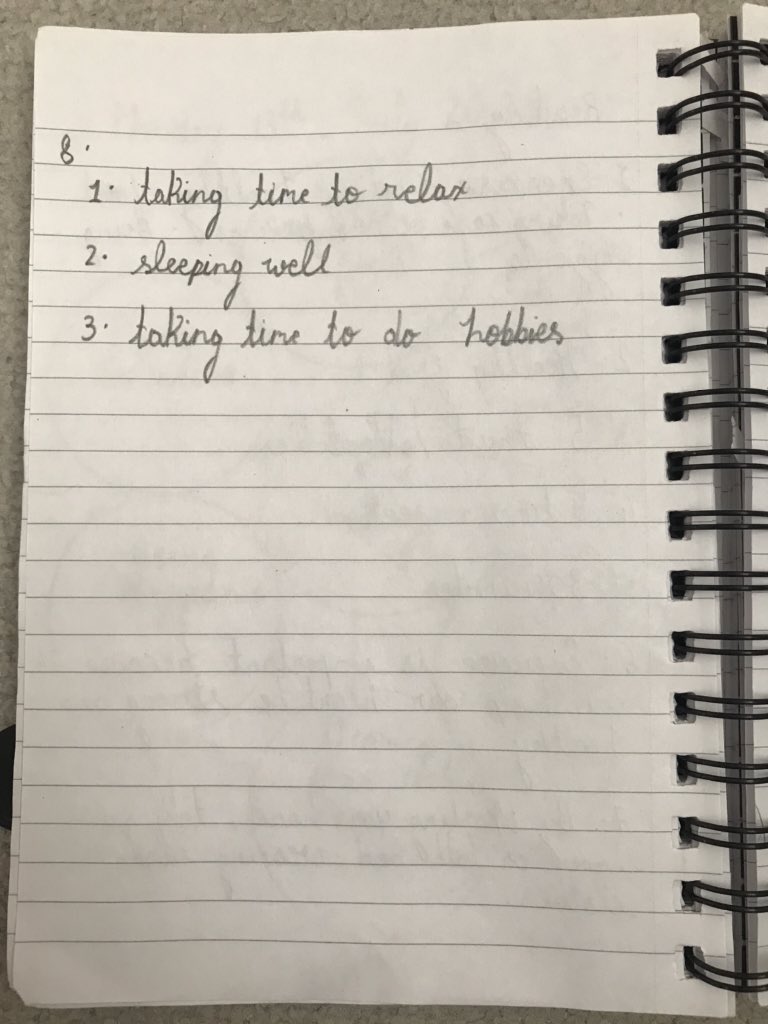 8.
1. taking time to relax
2. sleeping well
3. taking time to do hobbies